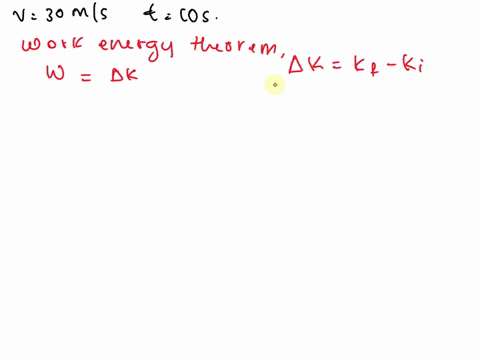 v = 30 m/s t = 60s.
work energy theorem,
W = ΔK
ΔK = Kf - Ki